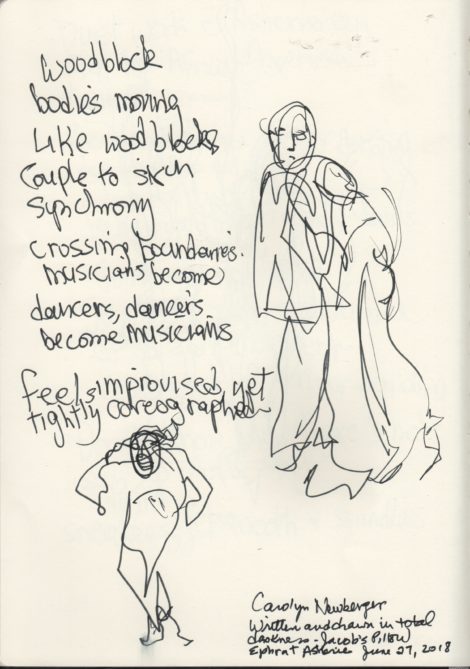 woodblock
bodies moving
Like wood blocks
Couple to such
synchrony
crossing boundaries.
musicians become
dancers, dancers
become musicians
feels improvised, yet
tightly coreographed
Carolyn Newberger
Written and drawn in total
darkness - Jacob's Pillow
Ephrat Asherie June 27, 2018